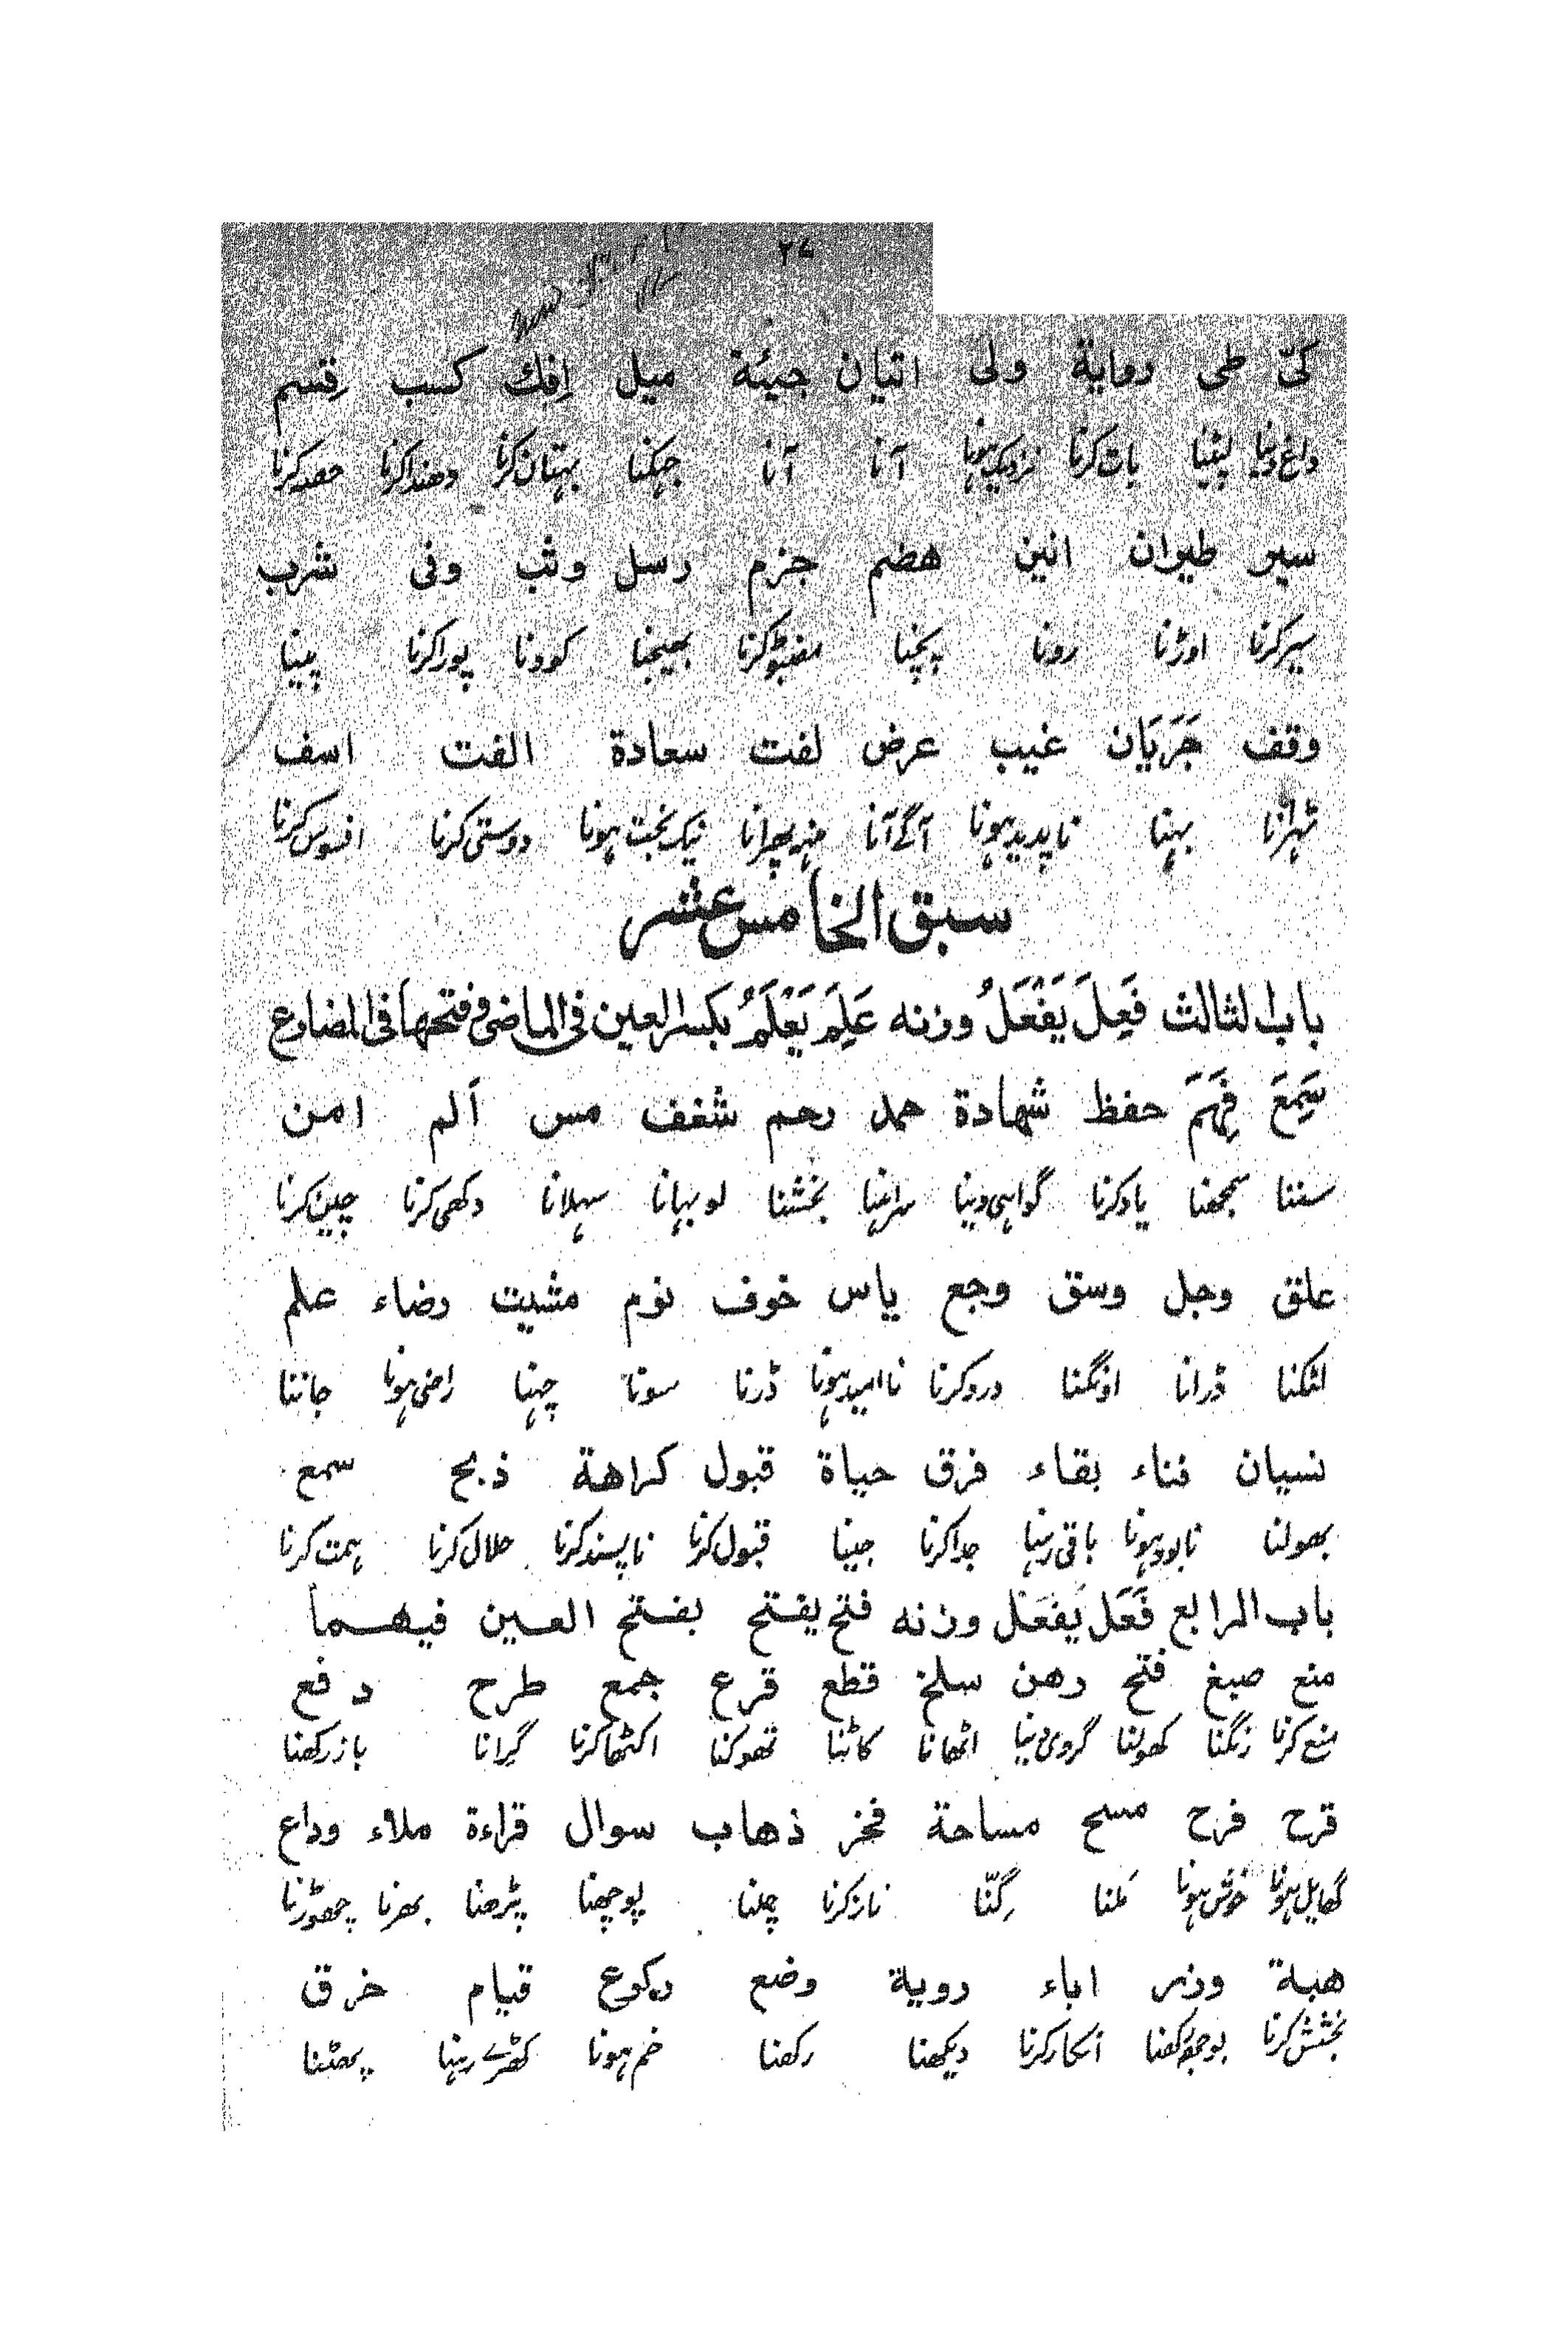 ۲۷
کیّ طی روایة ولی اتیان جیئة میل اِفك کسب قسم
داغ دینا لپٹینا بات کرنا نزدیک ہونا آنا آنا جہکنا بہتان کرنا دھندا کرنا حصہ کرنا
سیر طیران انین هضم جزم رسل وثب وفی شرب
سیر کرنا اوڑنا رونا پچنا مضبوط کرنا بھیجنا کودنا پورا کرنا پینا
وقف جَرَیَان غیب عرض لفت سعادة الفت اسف
ٹہرانا بہنا ناپدید ہونا آگے آنا منہ پھرانا نیک بخت ہونا دوستی کرنا افسوس کرنا
سبق الخامس عشر
باب الثالث فَعِلَ یَفْعَلُ وزنه عَلِمَ یَعْلَمُ بکسر العین فی الماضی و فتحها فی المضارع
سَمِعَ فَهِمَ حفظ شهادة حمد رحم شغف مس اَلم امن
سننا سمجھنا یاد کرنا گواہی دینا سراہنا بخشنا لوبہانا سہلانا دکھی کرنا چین کرنا
علق وجل وسق وجع یاس خوف نوم مشیت رضاء علم
لٹکنا ڈرانا اونگھنا درد کرنا ناامید ہونا ڈرنا سونا چہنا راضی ہونا جاننا
نسیان فناء بقاء فرق حیاة قبول کراهة ذبح سمع
بھولنا نابود ہونا باقی رہنا جدا کرنا جینا قبول کرنا ناپسند کرنا حلال کرنا ہمت کرنا
باب الرابع فَعَل یَفعَل وزنه فتح یفتح بفتح العین فیهما
منع صبغ فتح رهن سلخ قطع قرع جمع طرح دفع
منع کرنا رنگنا کھولنا گروی دینا اٹھانا کاٹنا ٹھوکنا اکٹھا کرنا گیرانا باز رکھنا
قرح فرح مسح مساحة فخر ذهاب سوال قراءة ملاء وداع
گھایل ہونا خوش ہونا ملنا گِنّا ناز کرنا چلنا پوچھنا پڑھنا بھرنا چھوڑنا
هبة وزر اباء رویة وضع رکوع قیام خرق
بخشش کرنا بوجھ رکھنا انکار کرنا دیکھنا رکھنا خم ہونا کھڑے رہنا پھٹنا